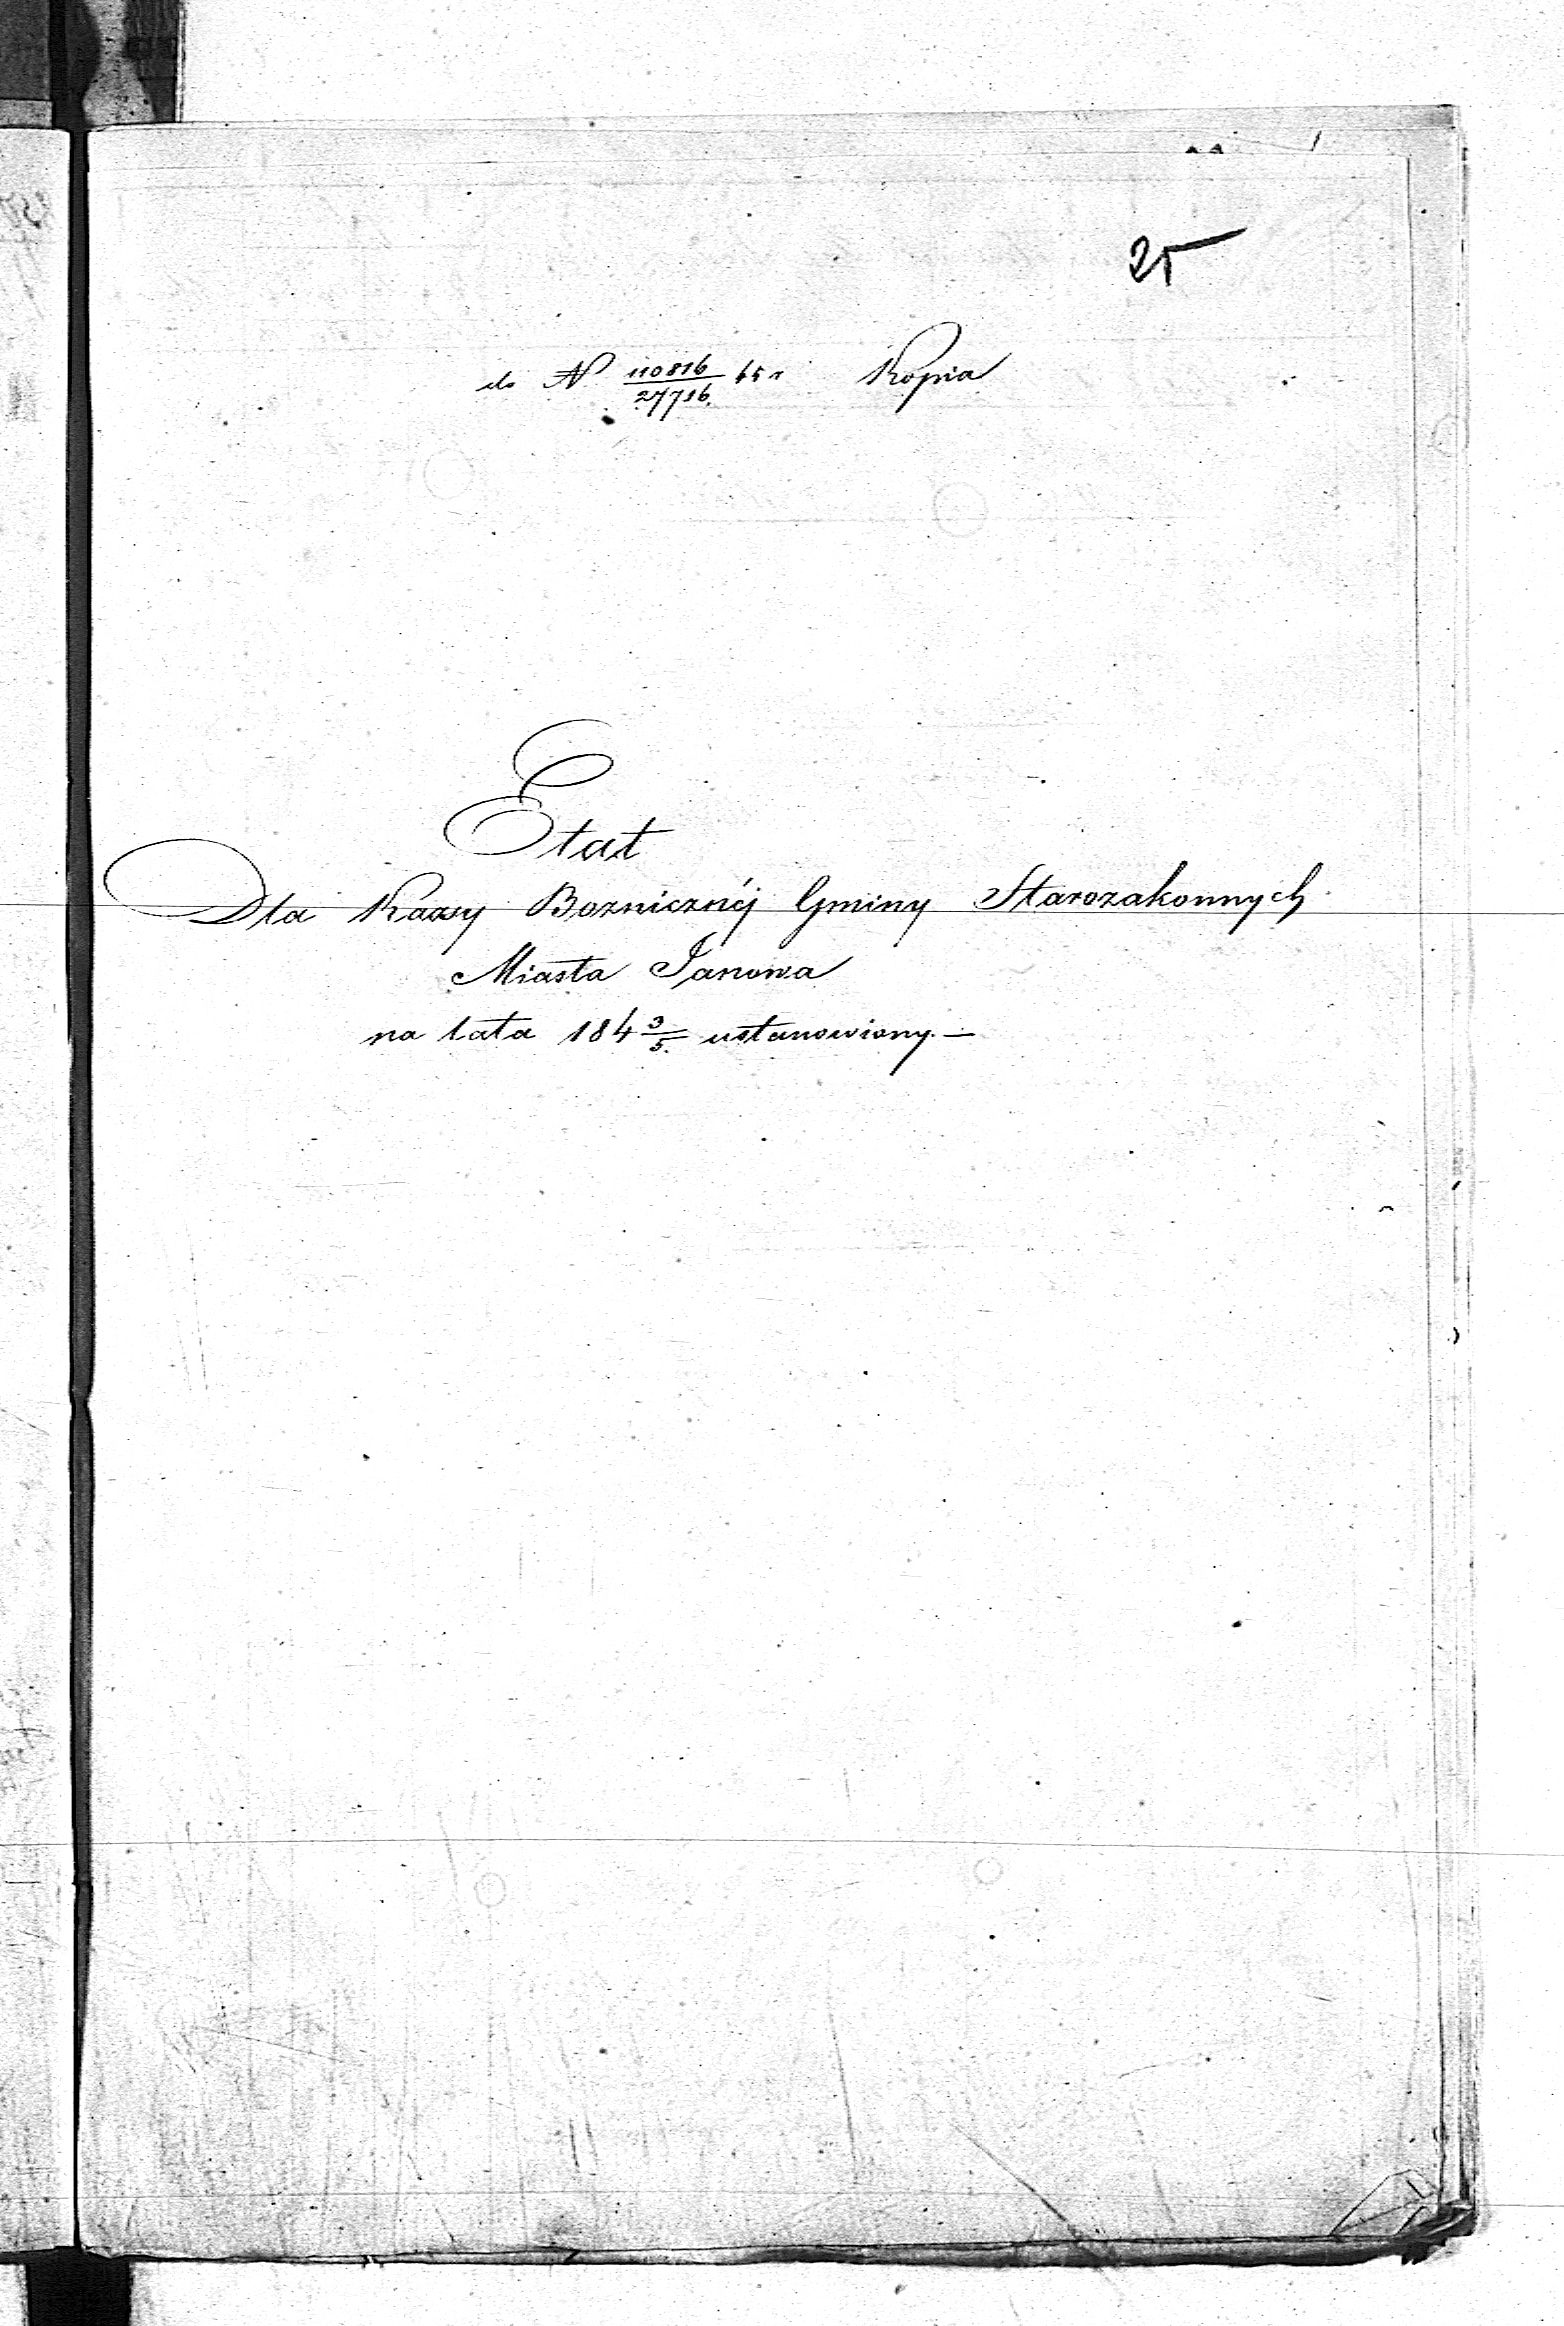 25
do N 110816/27716. 45 r Kopia
Etat
Dla Kassy Boznicznéj Gminy Starozakonnych
Miasta Janowa
na lata 184 3/5. ustanowiony.—